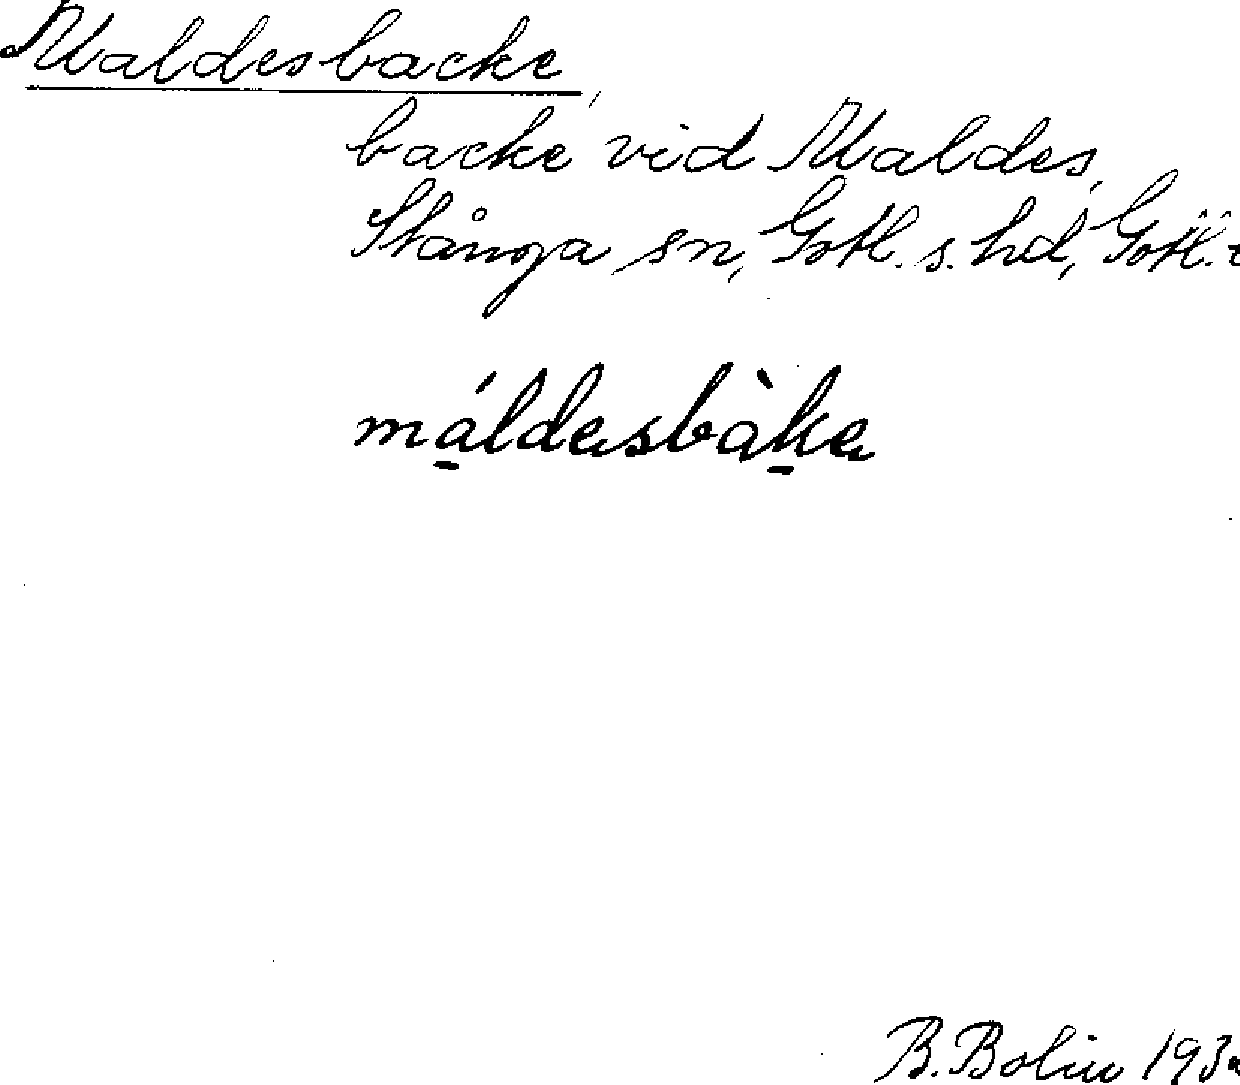 Maldesbacke,
backe vid Maldes,
Stånga sn, Gotl. s. hd, Gotl.
máldesbàka
B. Bolin 193